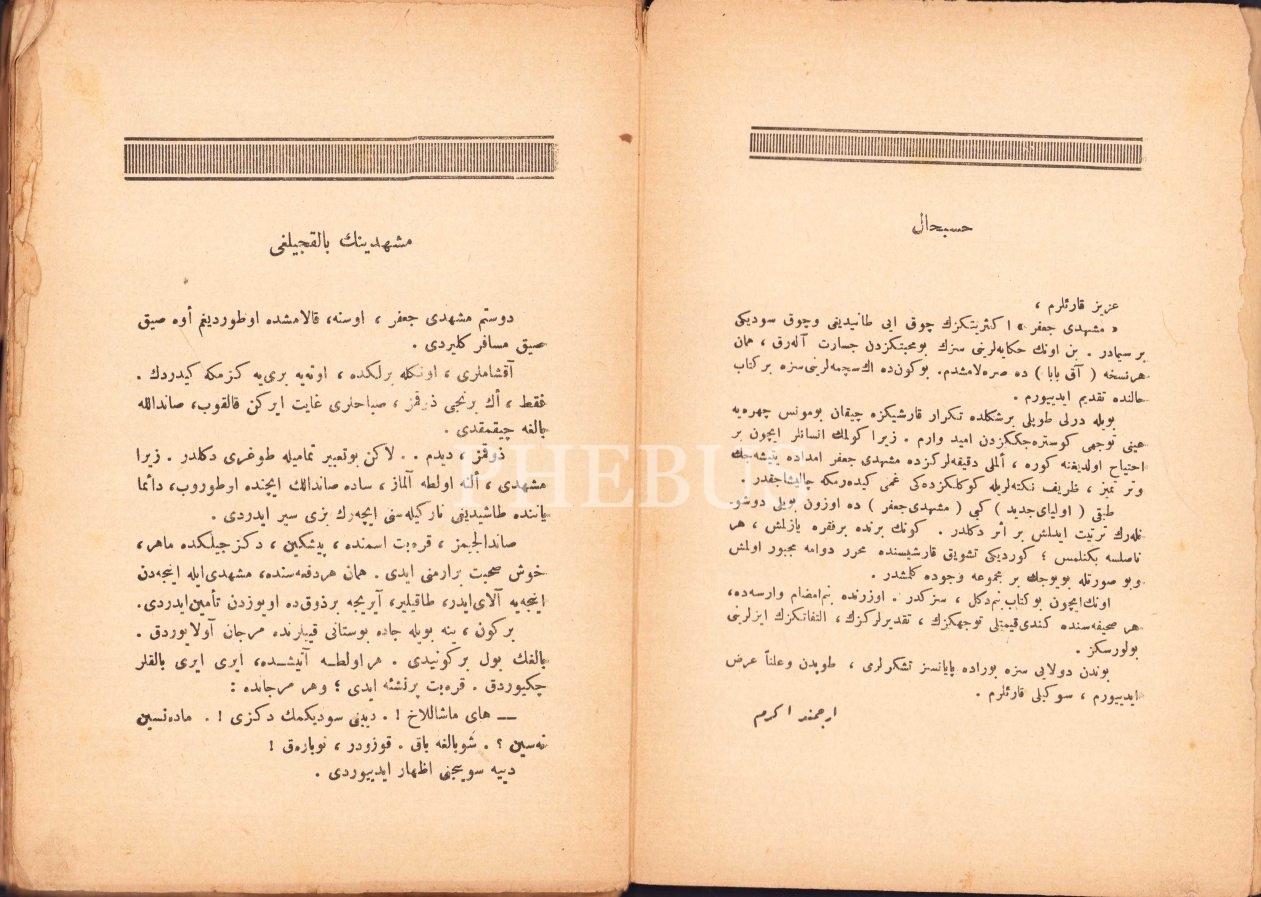 حسبحال
عزیز قارئلرم ،
« مشهدی جعفر » اکثریتکزك چوق ایی طانیدیغی وچوق سودیکی
بر سیمادر . بن اونك حکایه‌لرینی سزك بومحبتکزدن جسارت آله‌رق ، همان
هرنسخه ( آق بابا ) ده صره‌لامشدم. بوکون‌ده اك‌سچمه‌لرینی سزه برکتاب
حالنده تقدیم ایدییورم .
بویله درلی طوپلی برشکلده تکرار قارشیکزه چیقان بومونس چهره‌یه
عینی توجهی کوستره‌جککزدن امید وارم . زیرا کولمك انسانلر ایچون بر
احتیاج اولدیغنه کوره ، ألملی دقیقه‌لرکزده مشهدی جعفر امداده یتیشه‌جك
وتر تمیز ، ظریف نکته‌لریله کوکلکزده‌کی غمی کیده‌رمکه چالیشاجقدر .
طبقی ( اولیای‌جدید ) کبی ( مشهدی‌جعفر ) ده اوزون بویلی دوشو-
نله‌رك ترتیب ایدلش بر أثر دکلدر . کونك برنده برفقره یازلمش ، هر
ناصلسه بکنلمس ؛ کوردیکی تشویق قارشیسنده محرر دوامه مجبور اولمش
وبو صورتله بویوجك بر مجموعه وجوده کلمشدر .
اونك‌ایچون بوکتاب بنم‌دکل ، سزکدر . اوزرنده بنم‌امضام وارسه‌ده،
هر صحیفه‌سنده کندی‌قیمتلی توجهکزك ، تقدیرلرکزك ، التفاتکزك ایزلرینی
بولورسکز .
بوندن دولایی سزه بوراده پایانسز تشکرلری ، طوپدن وعلناً عرض
ایدییورم ، سوکیلی قارئلرم .
ارجمند اکرم
مشهدینك بالقجیلغی
دوستم مشهدی جعفر ، اوسته، قالامشده اوطوردیغم أوه صیق
صیق مسافر کلیردی .
آقشاملری ، اونکله برلکده ، اوته‌یه بری‌یه کزمکه کیدردك .
فقط ، أك برنجی ذوقمز ، صباحلری غایت ایرکن قالقوب، صاندالله
بالغه چیقمقدی .
ذوقمز ، دیدم . . لاکن بوتعبیر تمامیله طوغری دکلدر . زیرا
مشهدی ، ألنه اولطه آلماز ، ساده صاندالك ایچنده اوطوروب، دائما
یاننده طاشیدیغی نارکیله‌سنی ایچه‌رك بزی سیر ایدردی .
صاندالجیمز ، قره‌بت اسمنده ، پیشکین ، دکزجیلکده ماهر،
خوش صحبت برارمنی ایدی . همان هردفعه‌سنده، مشهدی‌ایله اینجه‌دن
اینجه‌یه آلای‌ایدر، طاقیلیر، آیریجه برذوق‌ده اویوزدن تأمین‌ایدردی.
برکون ، ینه بویله جاده بوستانی قیبلرنده مرجان آولایوردق .
بالغك بول برکونیدی . هراولطه آتیشده، ایری ایری بالقلر
چکیوردق . قره‌بت پرنشئه ایدی ؛ وهر مرجانده :
— های ماشاللاخ ! . دیبنی سودیکمك دکزی ! . ماده‌نسین
نه‌سین ؟ . شوبالغه باق . قوزودر ، نوباره‌ق !
دییه سویجنی اظهار ایدییوردی .
PHEBUS